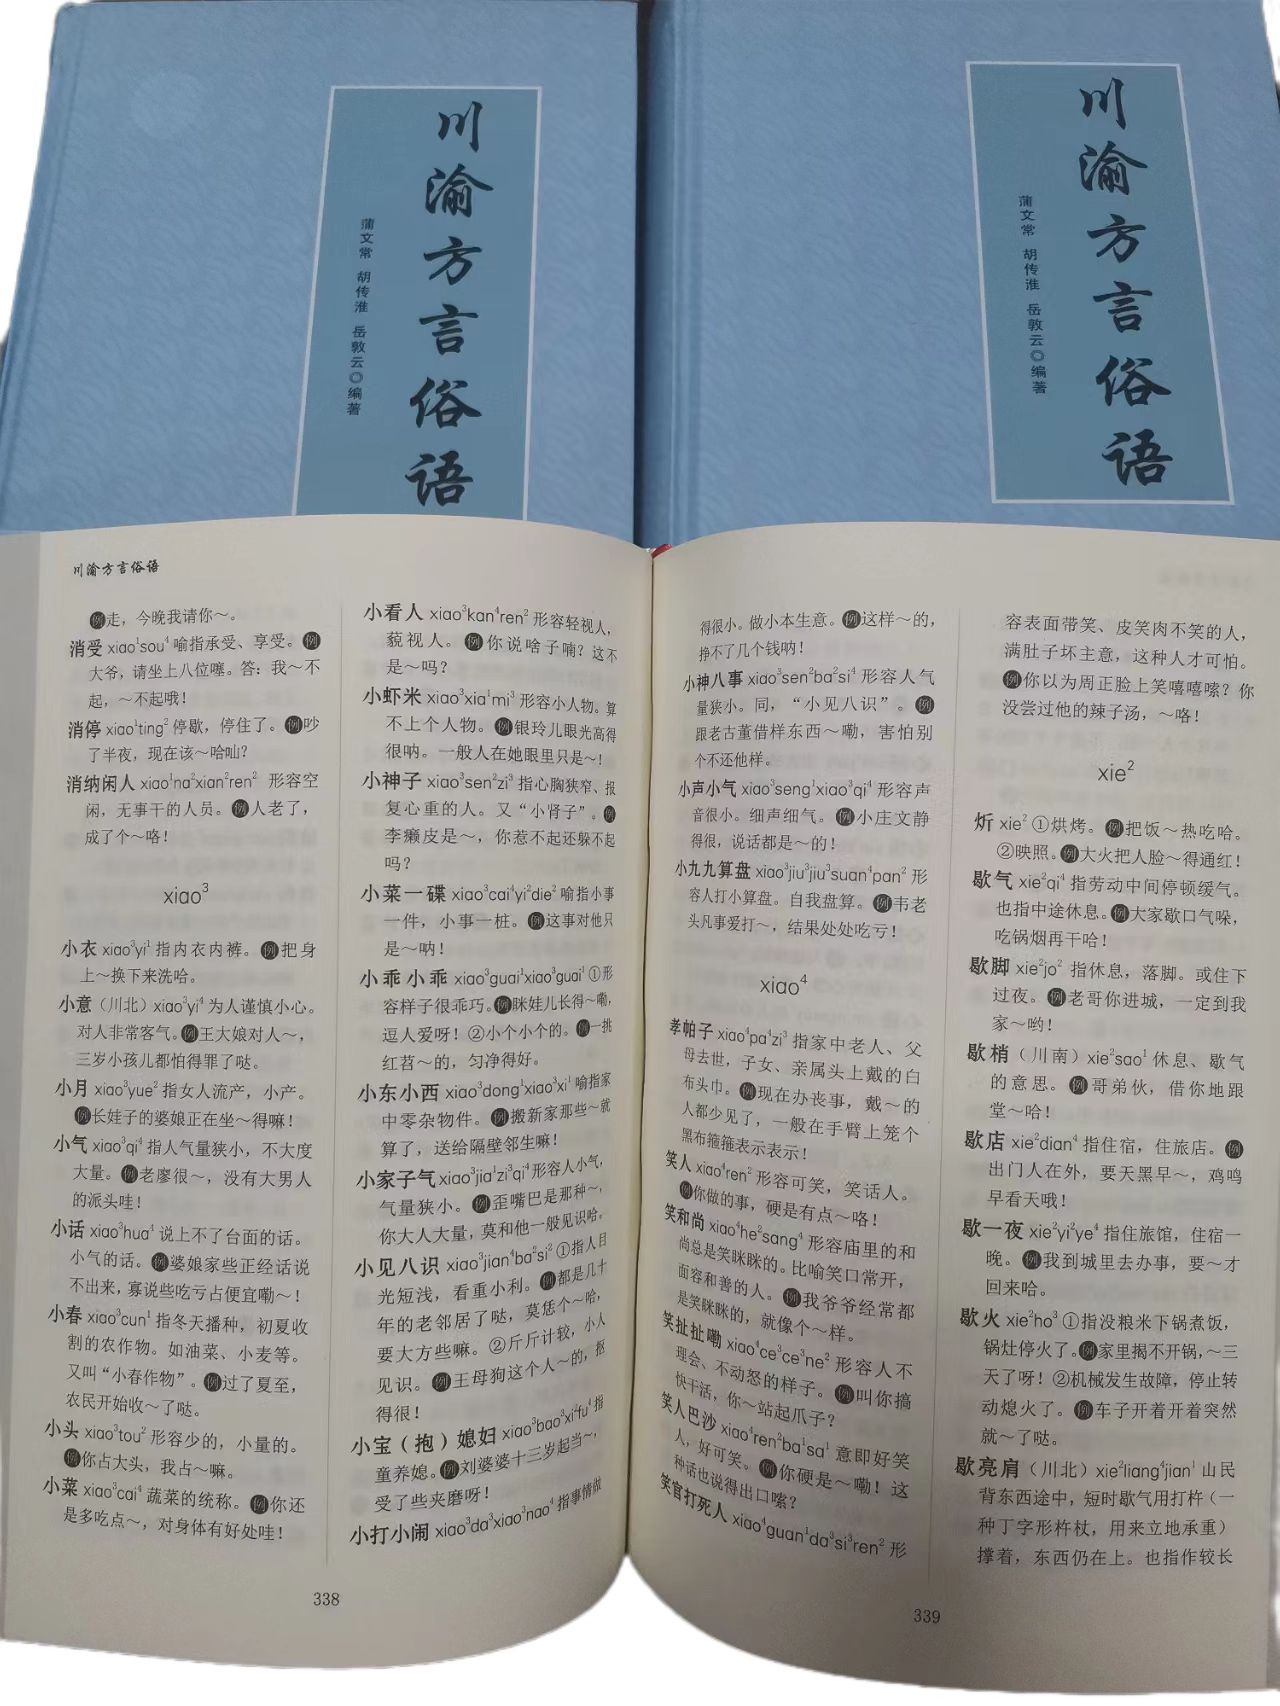 川渝方言俗语
蒲文常 胡传淮 岳敦云◎编著
川渝方言俗语
蒲文常 胡传淮 岳敦云◎编著
川渝方言俗语
例走，今晚我请你～。
消受 xiao¹sou⁴ 喻指承受、享受。例
大爷，请坐上八位噻。答：我～不
起，～不起哦！
消停 xiao¹ting² 停歇，停住了。例吵
了半夜，现在该～哈屾？
消纳闲人 xiao¹na²xian²ren² 形容空
闲，无事干的人员。例人老了，
成了个～咯！
xiao³
小衣 xiao³yi¹ 指内衣内裤。例把身
上～换下来洗哈。
小意（川北）xiao³yi⁴ 为人谨慎小心。
对人非常客气。例王大娘对人～，
三岁小孩儿都怕得罪了哒。
小月 xiao³yue² 指女人流产，小产。
例长娃子的婆娘正在坐～得嘛！
小气 xiao³qi⁴ 指人气量狭小，不大度
大量。例老廖很～，没有大男人
的派头哇！
小话 xiao³hua⁴ 说上不了台面的话。
小气的话。例婆娘家些正经话说
不出来，寡说些吃亏占便宜嘞～！
小春 xiao³cun¹ 指冬天播种，初夏收
割的农作物。如油菜、小麦等。
又叫“小春作物”。例过了夏至，
农民开始收～了哒。
小头 xiao³tou² 形容少的，小量的。
例你占大头，我占～嘛。
小菜 xiao³cai⁴ 蔬菜的统称。例你还
是多吃点～，对身体有好处哇！
小看人 xiao³kan⁴ren² 形容轻视人，
藐视人。例你说啥子喃？这不
是～吗？
小虾米 xiao³xia¹mi³ 形容小人物。算
不上个人物。例银玲儿眼光高得
很呐。一般人在她眼里只是～！
小神子 xiao³sen²zi³ 指心胸狭窄、报
复心重的人。又“小肾子”。例
李癞皮是～，你惹不起还躲不起
吗？
小菜一碟 xiao³cai⁴yi²die² 喻指小事
一件，小事一桩。例这事对他只
是～呐！
小乖小乖 xiao³guai¹xiao³guai¹ ①形
容样子很乖巧。例眯娃儿长得～嘞，
逗人爱呀！②小个小个的。例一挑
红苕～的，匀净得好。
小东小西 xiao³dong¹xiao³xi¹ 喻指家
中零杂物件。例搬新家那些～就
算了，送给隔壁邻生嘛！
小家子气 xiao³jia¹zi³qi⁴ 形容人小气，
气量狭小。例歪嘴巴是那种～，
你大人大量，莫和他一般见识哈。
小见八识 xiao³jian⁴ba²si² ①指人目
光短浅，看重小利。例都是几十
年的老邻居了哒，莫恁个～哈，
要大方些嘛。②斤斤计较，小人
见识。例王母狗这个人～的，抠
得很！
小宝（抱）媳妇 xiao³bao³xi²fu⁴ 指
童养媳。例刘婆婆十三岁起当～，
受了些夹磨呀！
小打小闹 xiao³da³xiao³nao⁴ 指事情做
338
得很小。做小本生意。例这样～的，
挣不了几个钱呐！
小神八事 xiao³sen²ba²si⁴ 形容人气
量狭小。同，“小见八识”。例
跟老古董借样东西～嘞，害怕别
个不还他样。
小声小气 xiao³seng¹xiao³qi⁴ 形容声
音很小。细声细气。例小庄文静
得很，说话都是～的！
小九九算盘 xiao³jiu³jiu³suan⁴pan² 形
容人打小算盘。自我盘算。例韦老
头凡事爱打～，结果处处吃亏！
xiao⁴
孝帕子 xiao⁴pa⁴zi³ 指家中老人、父
母去世，子女、亲属头上戴的白
布头巾。例现在办丧事，戴～的
人都少见了，一般在手臂上笼个
黑布箍箍表示表示！
笑人 xiao⁴ren² 形容可笑，笑话人。
例你做的事，硬是有点～咯！
笑和尚 xiao⁴he²sang⁴ 形容庙里的和
尚总是笑眯眯的。比喻笑口常开，
面容和善的人。例我爷爷经常都
是笑眯眯的，就像个～样。
笑扯扯嘞 xiao⁴ce³ce³ne² 形容人不
理会、不动怒的样子。例叫你搞
快干活，你～站起爪子？
笑人巴沙 xiao⁴ren²ba¹sa¹ 意即好笑
人，好可笑。例你硬是～嘞！这
种话也说得出口嗦？
笑官打死人 xiao⁴guan¹da³si³ren² 形
容表面带笑、皮笑肉不笑的人，
满肚子坏主意，这种人才可怕。
例你以为周正脸上笑嘻嘻嗦？你
没尝过他的辣子汤，～咯！
xie²
炘 xie² ①烘烤。例把饭～热吃哈。
②映照。例大火把人脸～得通红！
歇气 xie²qi⁴ 指劳动中间停顿缓气。
也指中途休息。例大家歇口气哚，
吃锅烟再干哈！
歇脚 xie²jo² 指休息，落脚。或住下
过夜。例老哥你进城，一定到我
家～哟！
歇梢（川南）xie²sao¹ 休息、歇气
的意思。例哥弟伙，借你地跟
堂～哈！
歇店 xie²dian⁴ 指住宿，住旅店。例
出门人在外，要天黑早～，鸡鸣
早看天哦！
歇一夜 xie²yi²ye⁴ 指住旅馆，住宿一
晚。例我到城里去办事，要～才
回来哈。
歇火 xie²ho³ ①指没粮米下锅煮饭，
锅灶停火了。例家里揭不开锅，～三
天了呀！②机械发生故障，停止转
动熄火了。例车子开着开着突然
就～了哒。
歇亮肩（川北）xie²liang⁴jian¹ 山民
背东西途中，短时歇气用打杵（一
种丁字形杵杖，用来立地承重）
撑着，东西仍在上。也指作较长
339